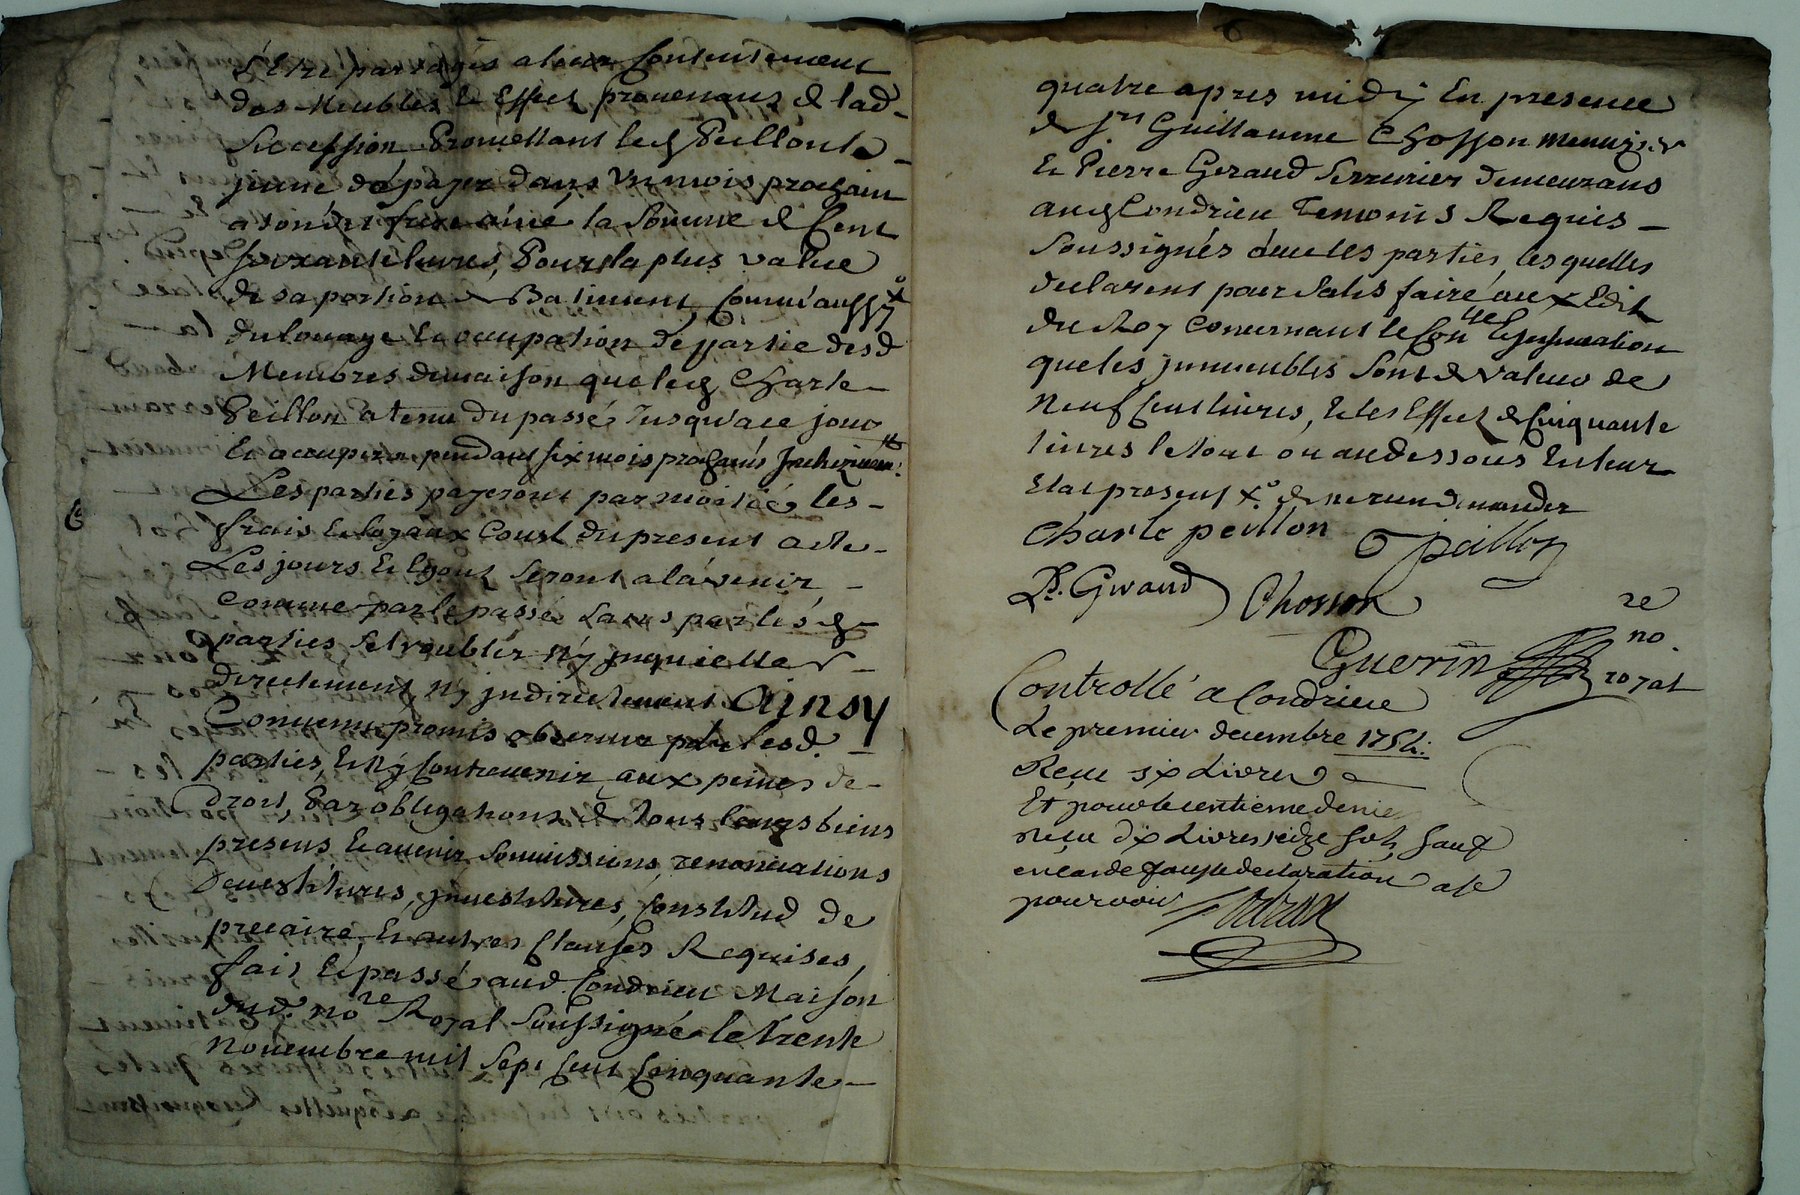 s'Etre partagés a leur Contentement
des Meubles & Effect provenans de lad.
Succession Promettant led Peillon le
jeune de payer dans un mois prochain
a sondit frere ainé, la Somme de Cent
soixante livres, Pour la plus value
de sa portion de Batiment, Comme aussy
du louage & occupation de partie desd
Membres de maison que led Charle
Peillon a tenu du passé Jusqu'a ce jour
Et occupera pendant six mois prochains
Les parties payeront par moitié les
frais & loyaux Coust du present acte
Les jours & Egout seront a l'avenir
Comme par le passé sans par lesd
parties se troubler n'y jnquietter
directement n'y jndirectement Ainsy
Convenu promis observer par lesd.
parties, & n'y Contrevenir aux peines de
Droit, Par obligations de tous leurs biens
presens, & avenir soumissions, renonciations
Devestitures, jnvestitures, Constitud de
precaire, & autres Clauses Requises,
fait & passé aud. Condrieu Maison
dud. nore Royal Soussigné le trente
Novembre mil Sept Cent Cinquante
quatre apres midy En presence
de srs Guillaume Chosson menuzier
Et Pierre Geraud Serrurier demeurans
aud Condrieu Temoins Requis
Soussignés avec les parties, les quelles
declarent pour Satisfaire aux Edit
du Roy Concernant le Conlle & jnsinuation
que les jmmeubles Sont de valeur de
Neuf Cent livres, & les Effect de Cinquante
livres le tout ou au dessous & leur
Etat present xo. de ne rien demander
Charle peillon peillon
P. Giraud Chosson
Guerin nore royal
Controllé a Condrieu
Le premier decembre 1754.
Reçu six Livres
Et pour le centieme denier
reçu dix Livres seize sols, sauf
en cas de fausse declaration a se
pourvoir